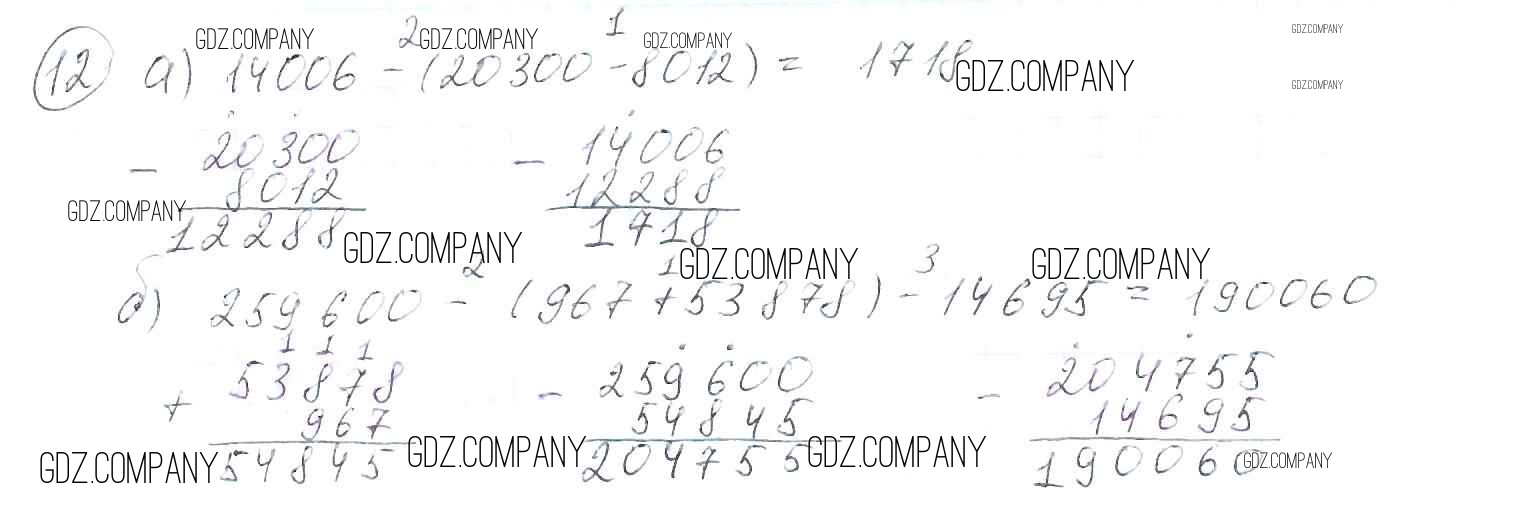 GDZ.COMPANY 2 GDZ.COMPANY 1 GDZ.COMPANY GDZ.COMPANY
12 а) 14006 - (20300 - 8012) = 1718 GDZ.COMPANY GDZ.COMPANY
- 20300 - 14006
8012 12288
GDZ.COMPANY
12288 GDZ.COMPANY 1718
2 1 GDZ.COMPANY 3 GDZ.COMPANY
б) 259600 - (967 + 53878) - 14695 = 190060
1 1 1
+ 53878 - 259600 - 204755
967 54845 14695
GDZ.COMPANY 54845 GDZ.COMPANY 204755 GDZ.COMPANY 190060 GDZ.COMPANY